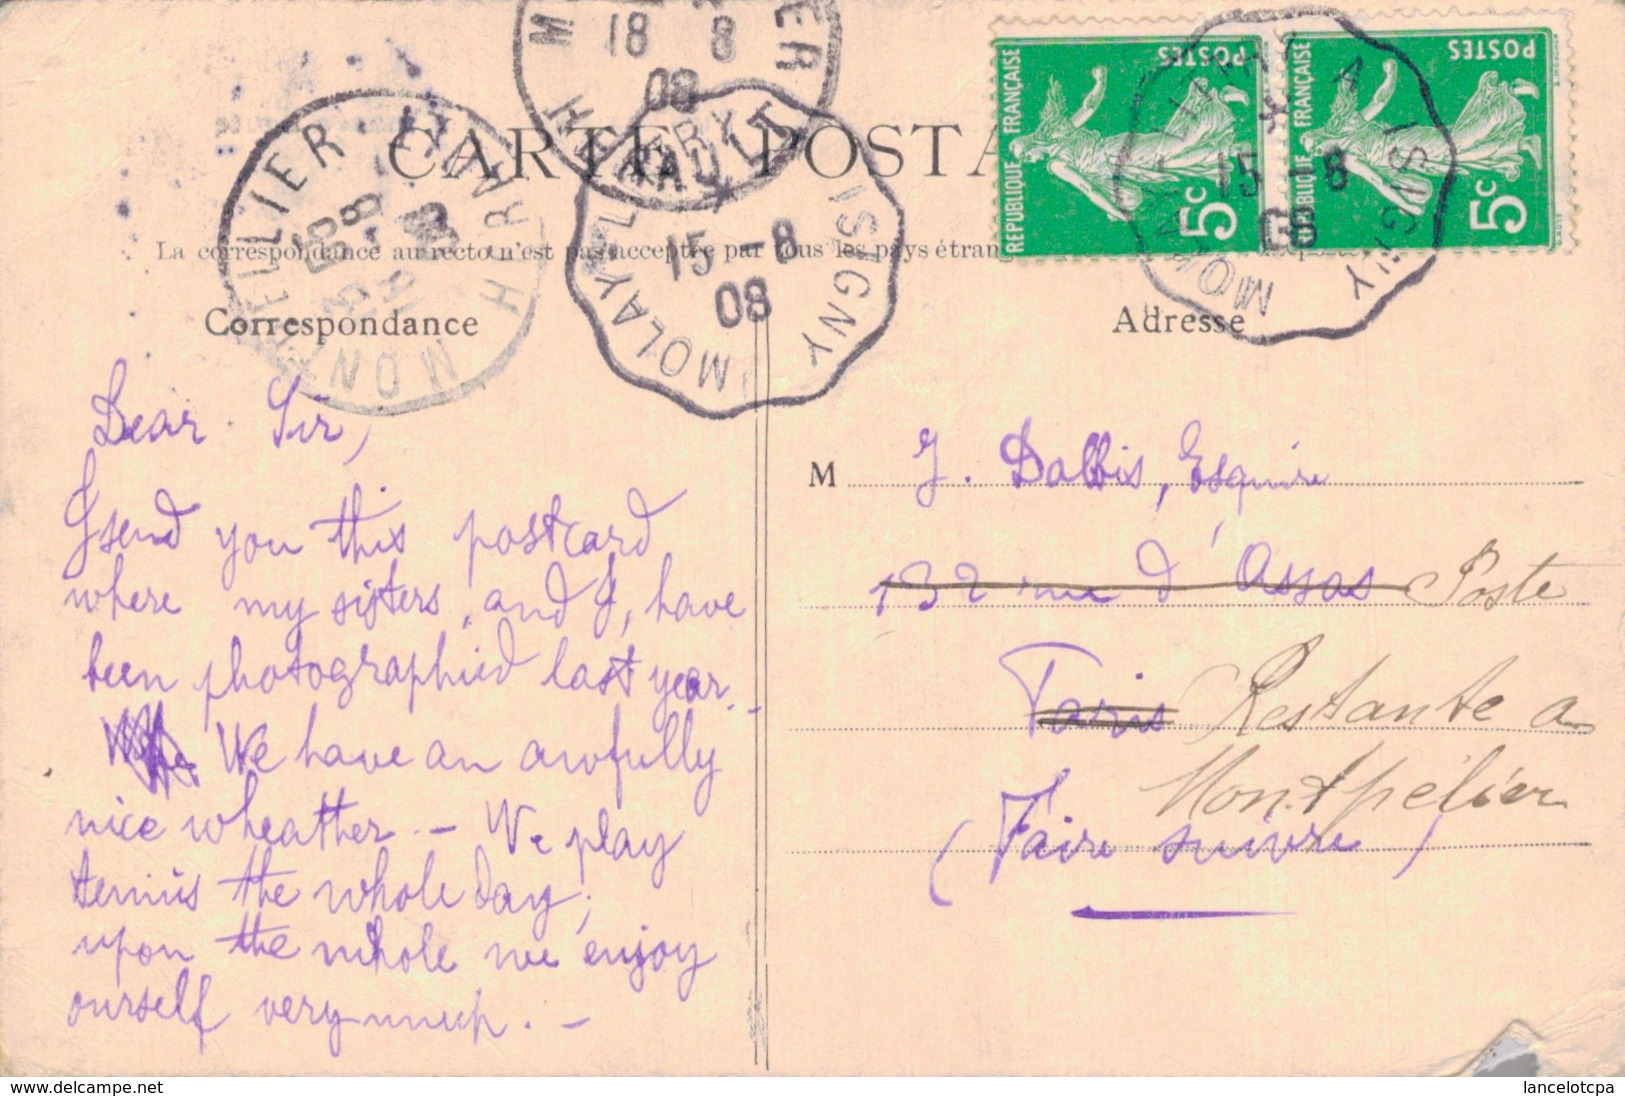 CARTE POSTA
La correspondance au recto n'est pas acceptée par tous les pays étran
Correspondance
Adresse
Dear Sir,
I send you this postcard
where my sisters, and I, have
been photographied last year. -
We have an awfully
nice wheather. - We play
tennis the whole day;
upon the whole we enjoy
ourself very much. -
M J. Dalbis, Esquire
132 rue d'Assas Poste
Paris Restante a
Montpélier
(Faire suivre)
RÉPUBLIQUE FRANÇAISE
POSTES
5c
FRANÇAISE
POSTES
5c
MONTPELLIER
HÉRAULT
18 8
08
MOLAY-L ISIGNY
15 - 8
08
A ISIGNY
15 - 8
08
delcampe.net
lancelotcpa